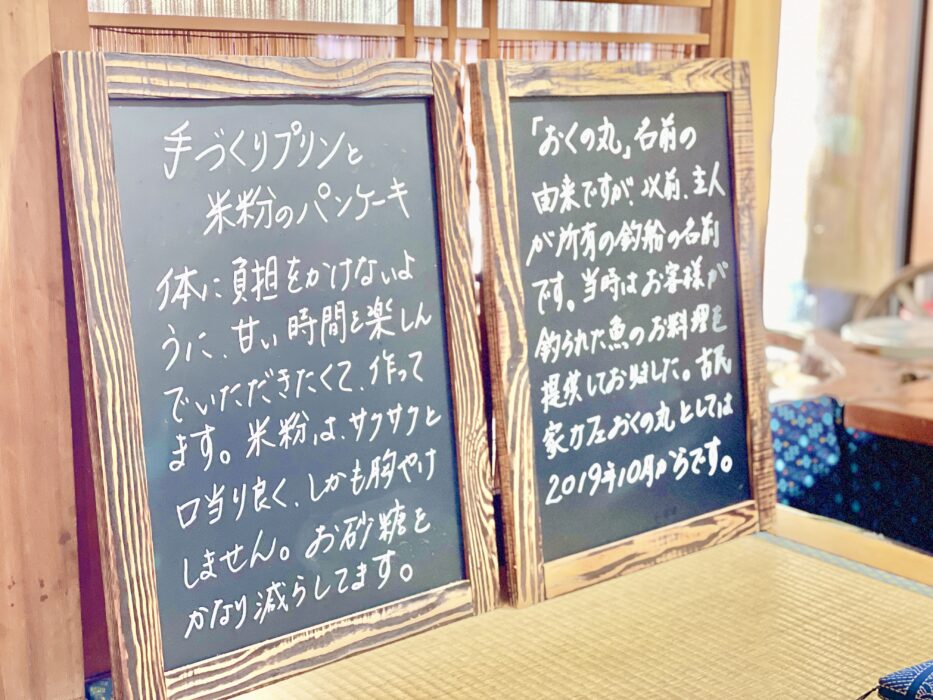 手づくりプリンと
米粉のパンケーキ
体に負担をかけないよ
うに、甘い時間を楽しん
でいただきたくて、作って
ます。米粉は、サクサクと
口当り良く、しかも胸やけ
しません。お砂糖を
かなり減らしてます。
「おくの丸」名前の
由来ですが、以前、主人
が所有の釣船の名前
です。当時はお客様が
釣られた魚のお料理を
提供しておりました。古民
家カフェおくの丸としては
2019年10月からです。